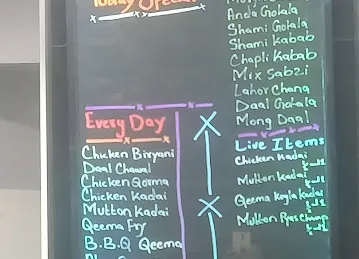 Today Special
Anda Gotala
Shami Gotala
Shami kabab
Chapli kabab
Mix Sabzi
Lahor Chana
Daal Gotala
Mong Daal
Every Day
Chicken Biryani
Daal Chawal
Chicken Qorma
Chicken Kadai
Mutton Kadai
Qeema Fry
B.B.Q Qeema
Live Items
Chicken kadai
Mutton kadai
Qeema koyla kadai
Mutton